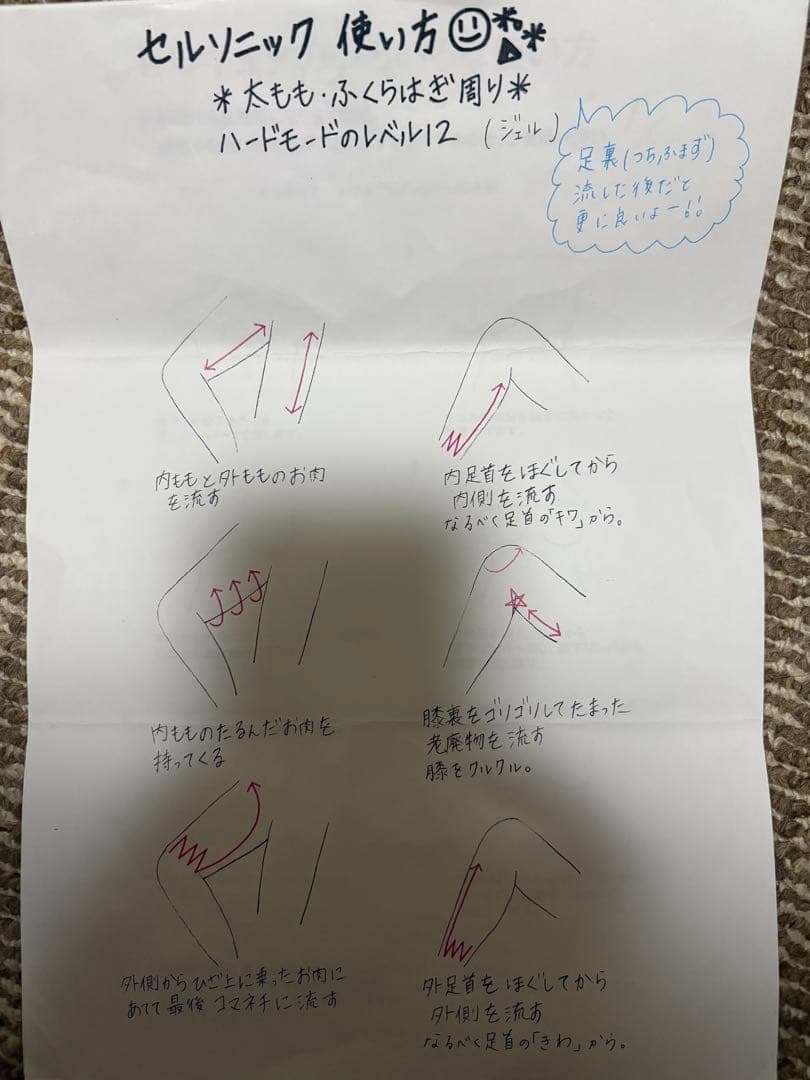 セルソニック 使い方
*太もも・ふくらはぎ周り*
ハードモードのレベル12 (ジェル)
足裏(つちふまず)
流した後だと
更に良いよー!!
内ももと外もものお肉
を流す
内足首をほぐしてから
内側を流す
なるべく足首の「キワ」から。
内もものたるんだお肉を
持ってくる
膝裏をゴリゴリしてたまった
老廃物を流す
膝をクルクル。
外側からひざ上に乗ったお肉に
あてて最後コマネチに流す
外足首をほぐしてから
外側を流す
なるべく足首の「きわ」から。